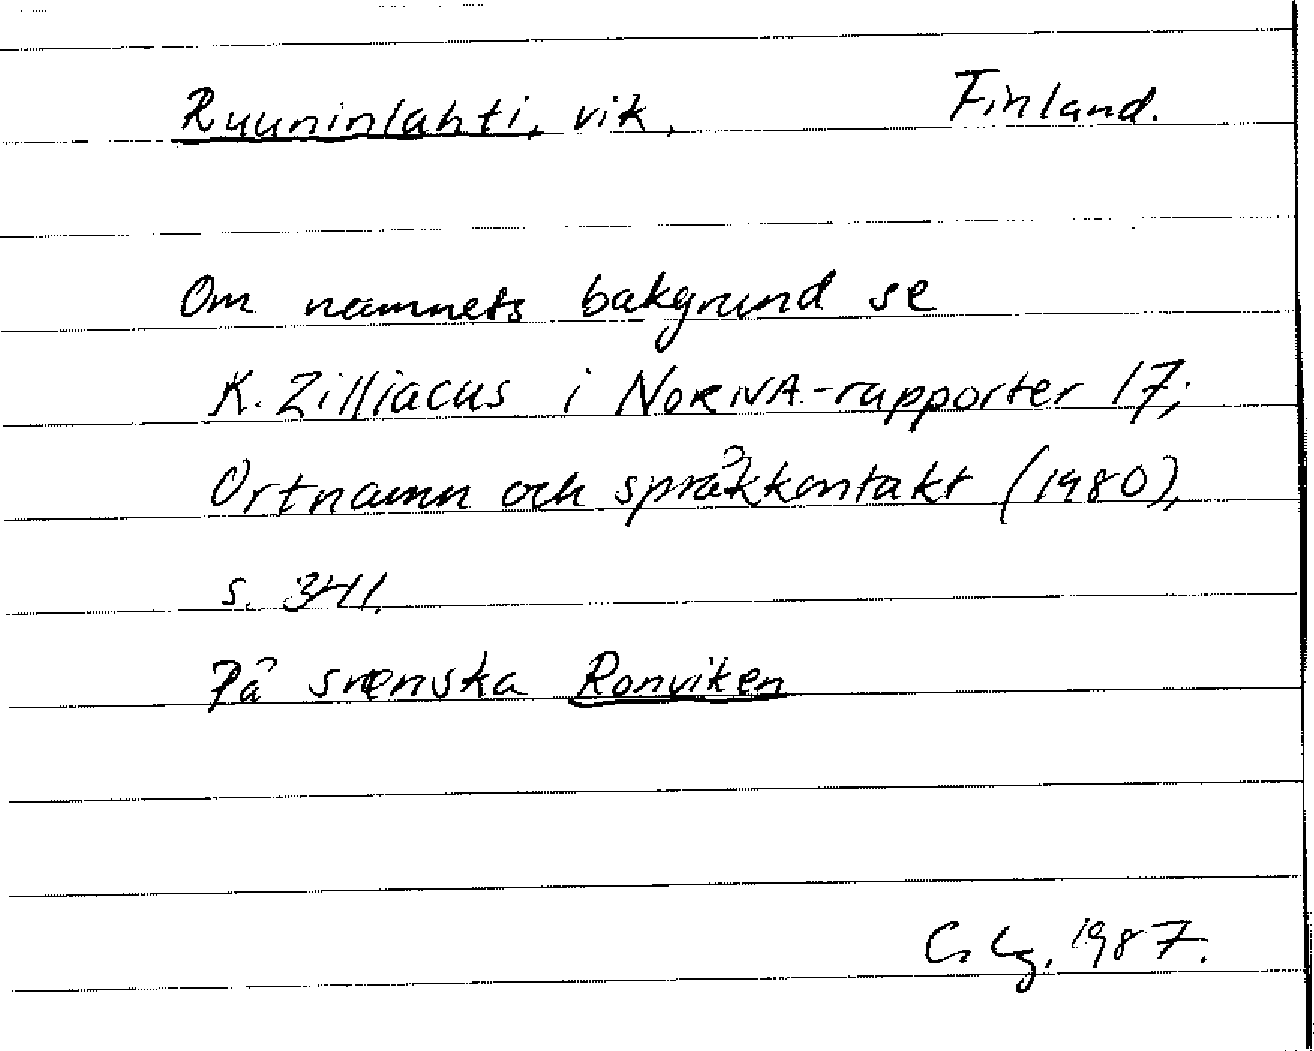 Ruuninlahti, vik, Finland.
Om namnets bakgrund se
K. Zilliacus i NORNA-rapporter 17;
Ortnamn och språkkontakt (1980),
s. 341.
På svenska Ronviken
C. Lg. 1987.